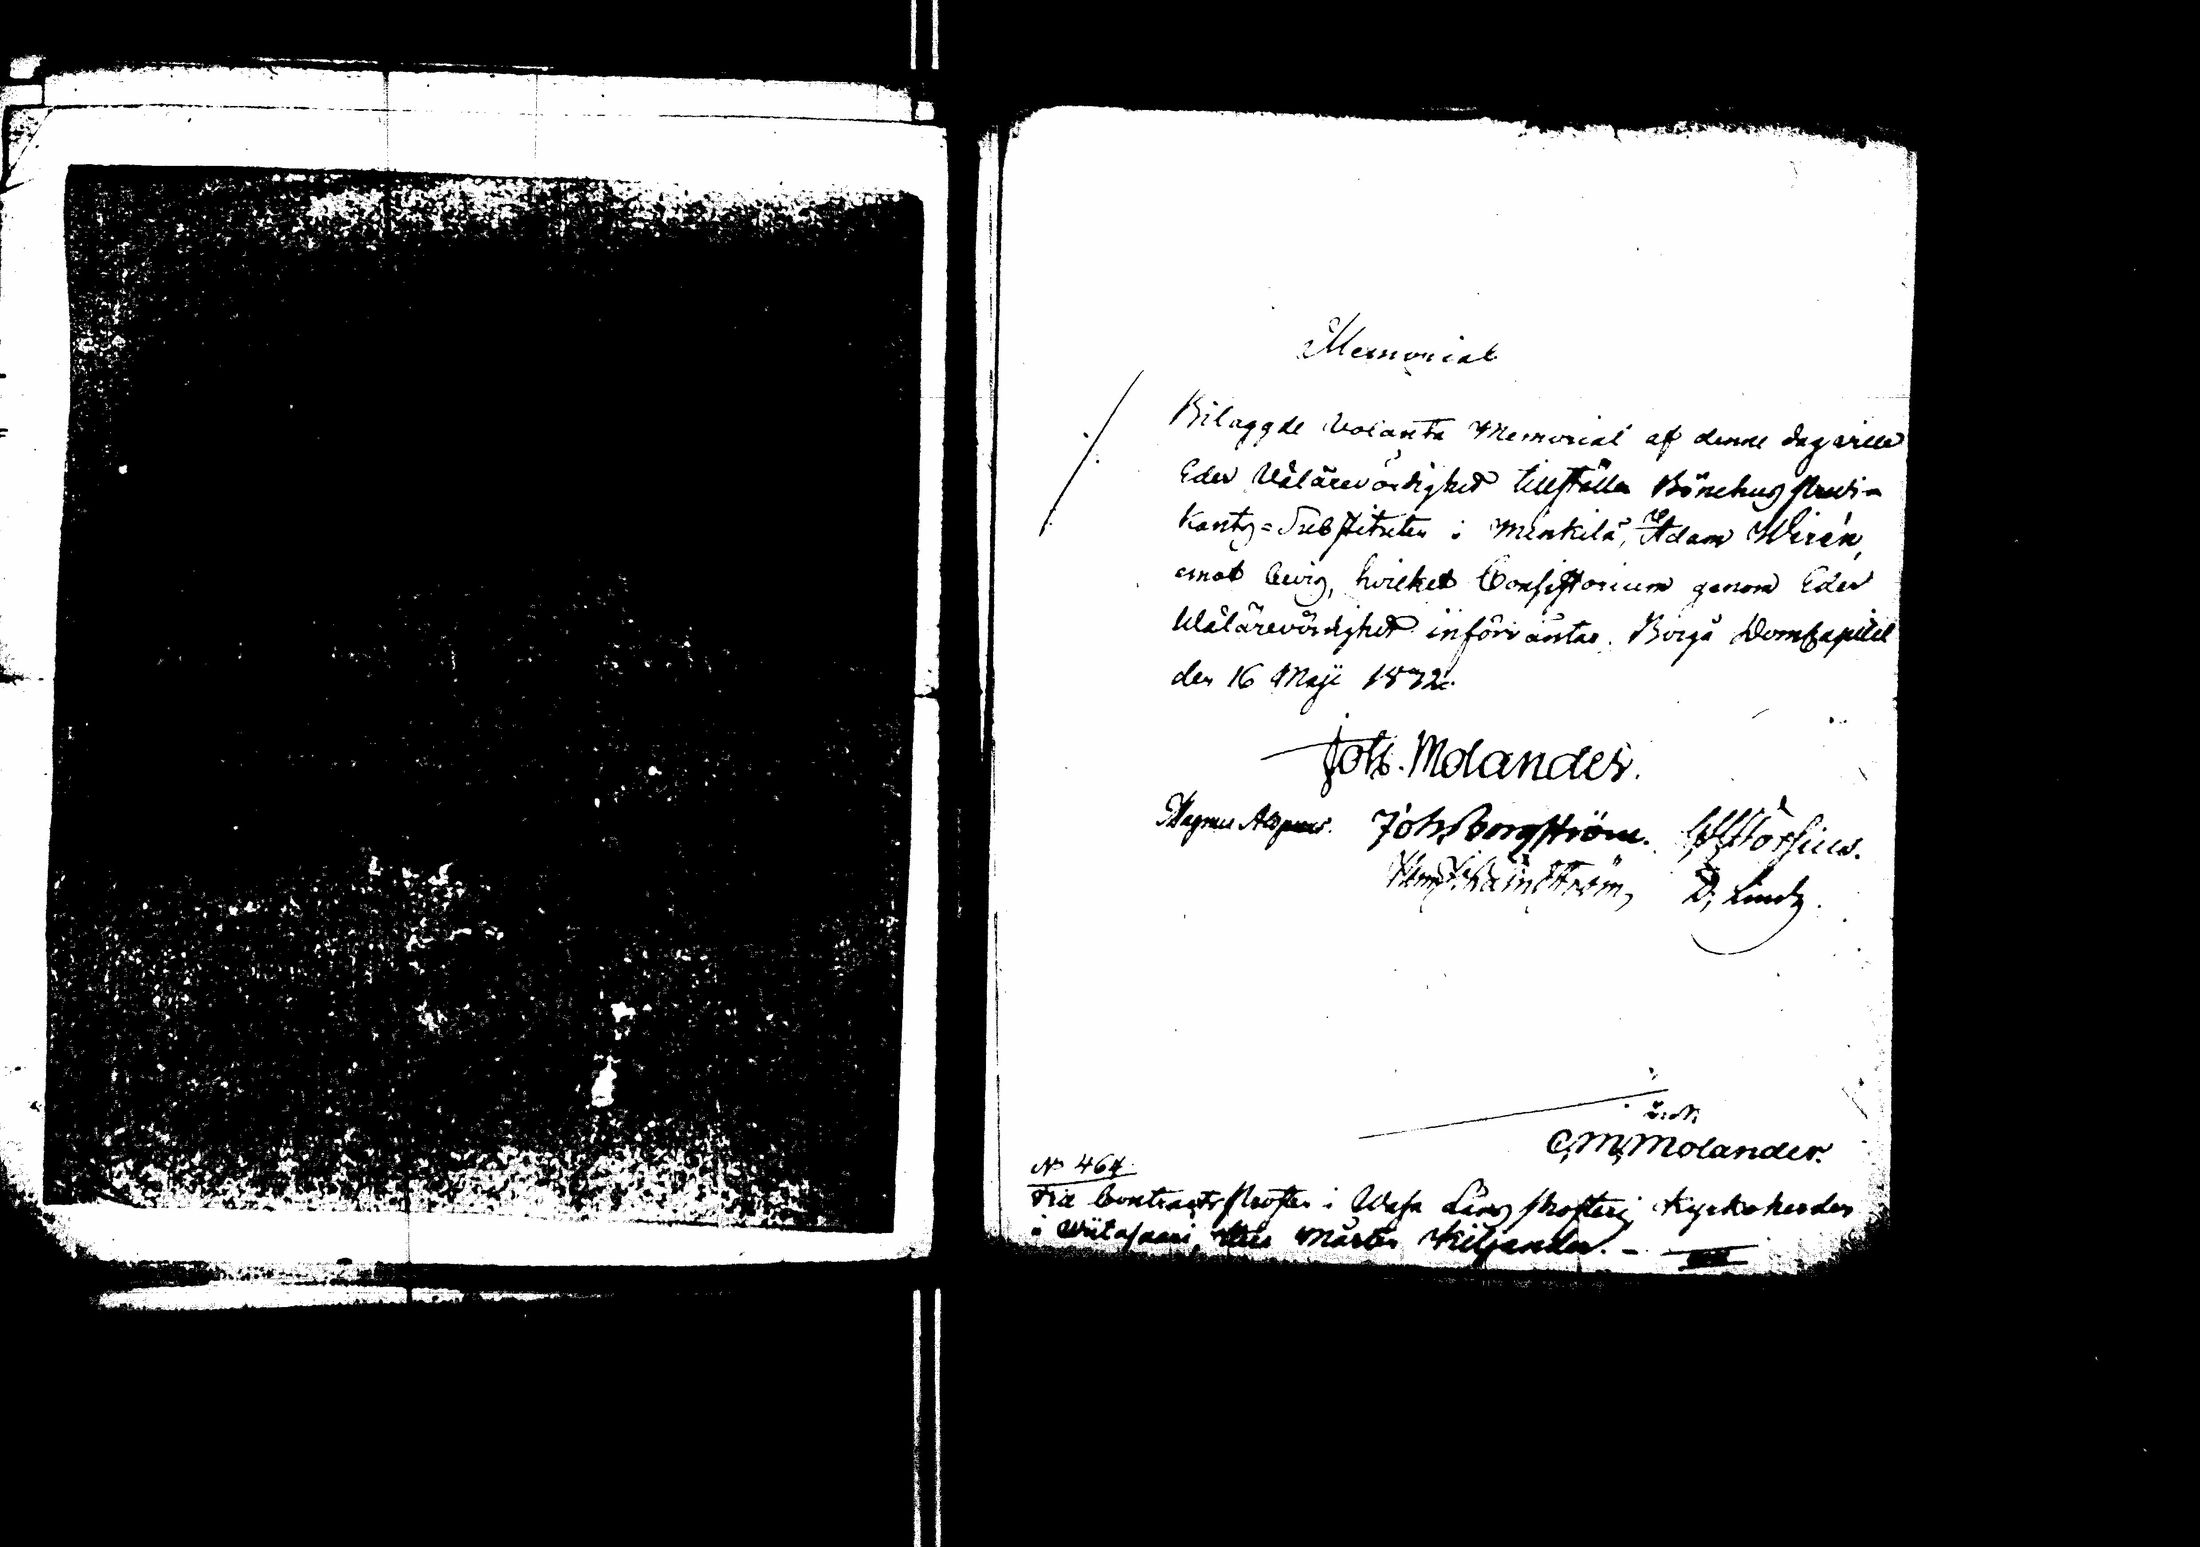 Memorial
Bilaggde Volanta Memorial af denne dag ville
Eder Wälärevördighet tillställa Bönehuspredi-
kants-Substituten i Minkilä, Adam Wirén,
emot bevis, hvilket Consistorium genom Eder
Wälärevördighet införväntar. Borgå DomCapitel
den 16 Maji 1832.
Joh. Molander.
Magnus Alopæus. Joh. Borgström.
D. Lindh.
C. M. Molander.
No 464.
Till Contracts Prosten i Wasa Läns Prosteri, Kyrkoherden
i Wiitasaari, Herr Mårten Kiljander. -